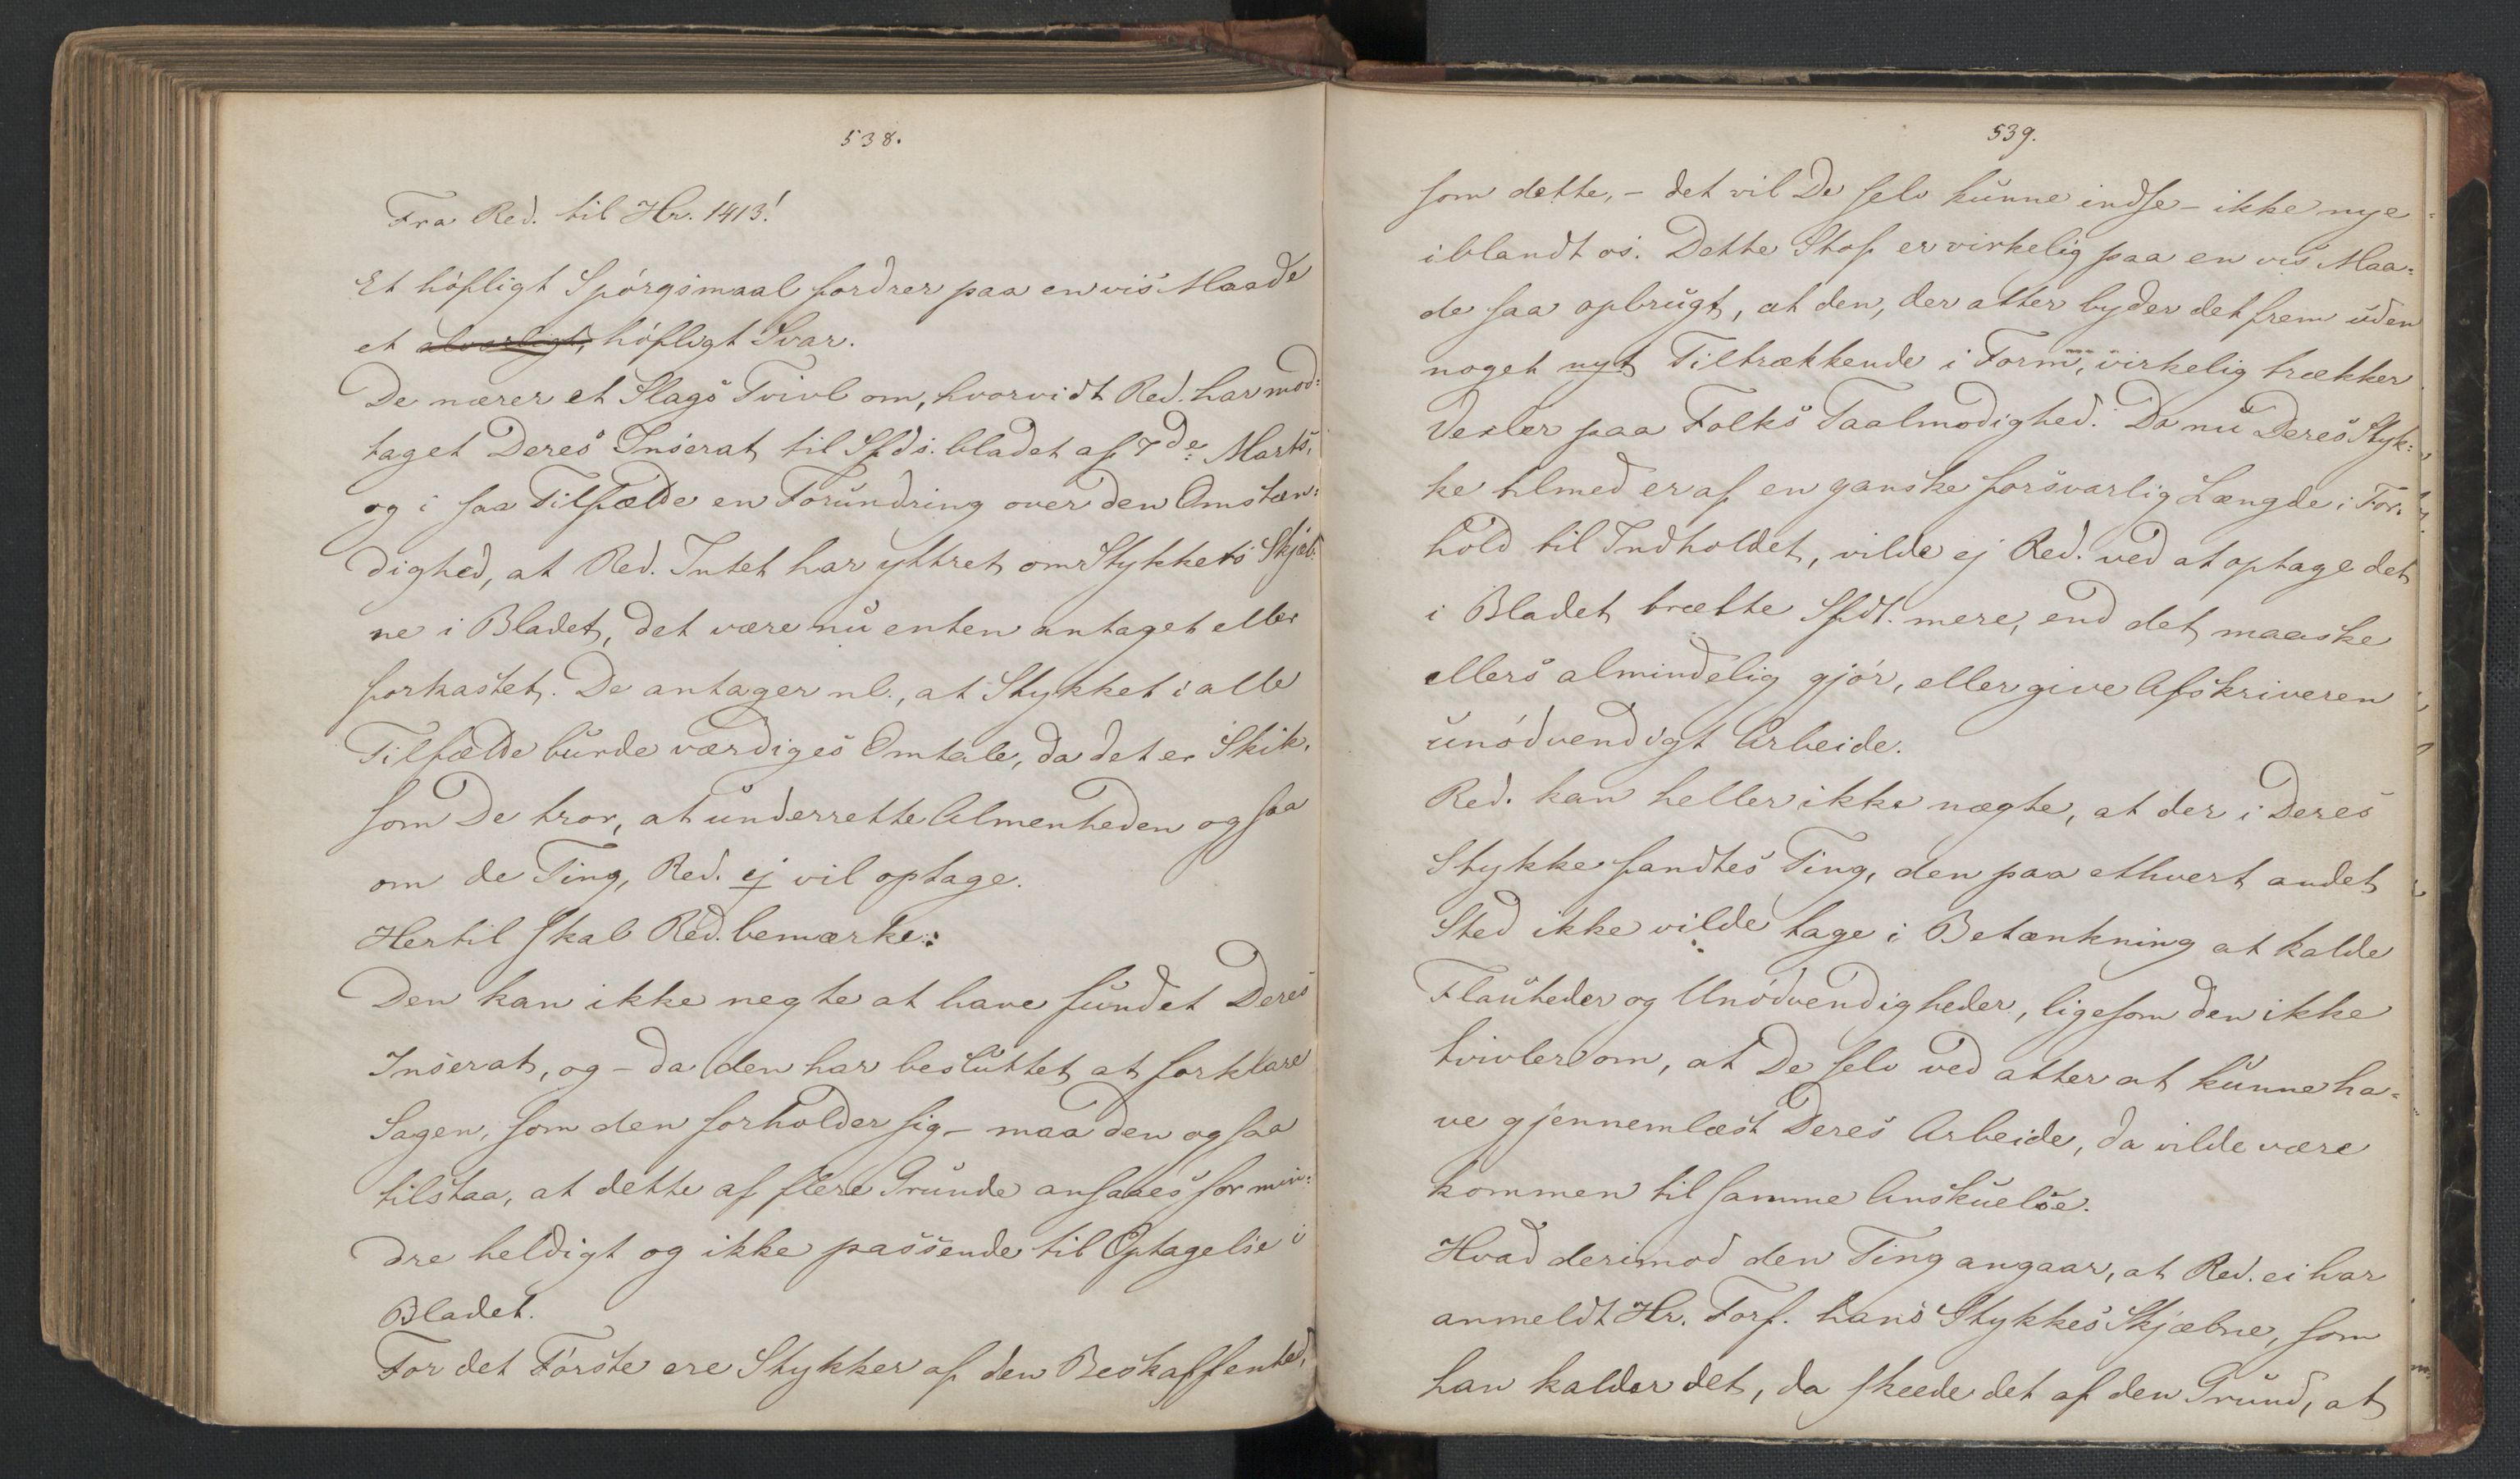 538.
Fra Red. til Hr. 1413!
Et höfligt Spörgsmaal fordrer paa en vis Maade
et alvorligt, höfligt Svar.
De nærer et Slags Tvivl om, hvorvidt Red. har mod-
taget Deres Inserat til Sfds. bladet af 7de Marts,
og i saa Tilfælde en Forundring over den Omstæn-
dighed, at Red. Intet har yttret om Stykkets Skjæb-
ne i Bladet, det være nu enten antaget eller
forkastet. De antager nl., at Stykket i alle
Tilfælde burde værdiges Omtale, da det er Skik,
som De tror, at underrette Almenheden ogsaa
om de Ting, Red. ej vil optage.
Hertil skal Red. bemærke:
Den kan ikke negte at have fundet Deres
Inserat, og - da den har besluttet at forklare
Sagen, som den forholder sig - maa den ogsaa
tilstaa, at dette af flere Grunde ansaaes for min-
dre heldigt og ikke passende til Optagelse i
Bladet.
For det Förste ere Stykker af den Beskaffenhed,
539.
som dette, - det vil De selv kunne indse - ikke nye
iblandt os. Dette Stof er virkelig paa en vis Maa-
de saa opbrugt, at den, der atter byder det frem uden
noget nyt Tiltrækkende i Form, virkelig trækker
Vexler paa Folks Taalmodighed. Da nu Deres Styk-
ke tilmed er af en ganske forsvarlig Længde i For-
hold til Indholdet, vilde ej Red. ved at optage det
i Bladet trætte Sfdt. mere, end det maaske
ellers almindelig gjör, eller give Afskriveren
unödvendigt Arbeide.
Red. kan heller ikke nægte, at der i Deres
Stykke fandtes Ting, den paa ethvert andet
Sted ikke vilde tage i Betænkning at kalde
Flauheder og Unödvendigheder, ligesom den ikke
tvivler om, at De selv ved atter at kunne ha-
ve gjennemlæst Deres Arbeide, da vilde være
kommen til samme Anskuelse.
Hvad derimod den Ting angaar, at Red. ei har
anmeldt Hr. Forf. hans Stykkes Skjæbne, som
han kalder det, da skeede det af den Grund, at